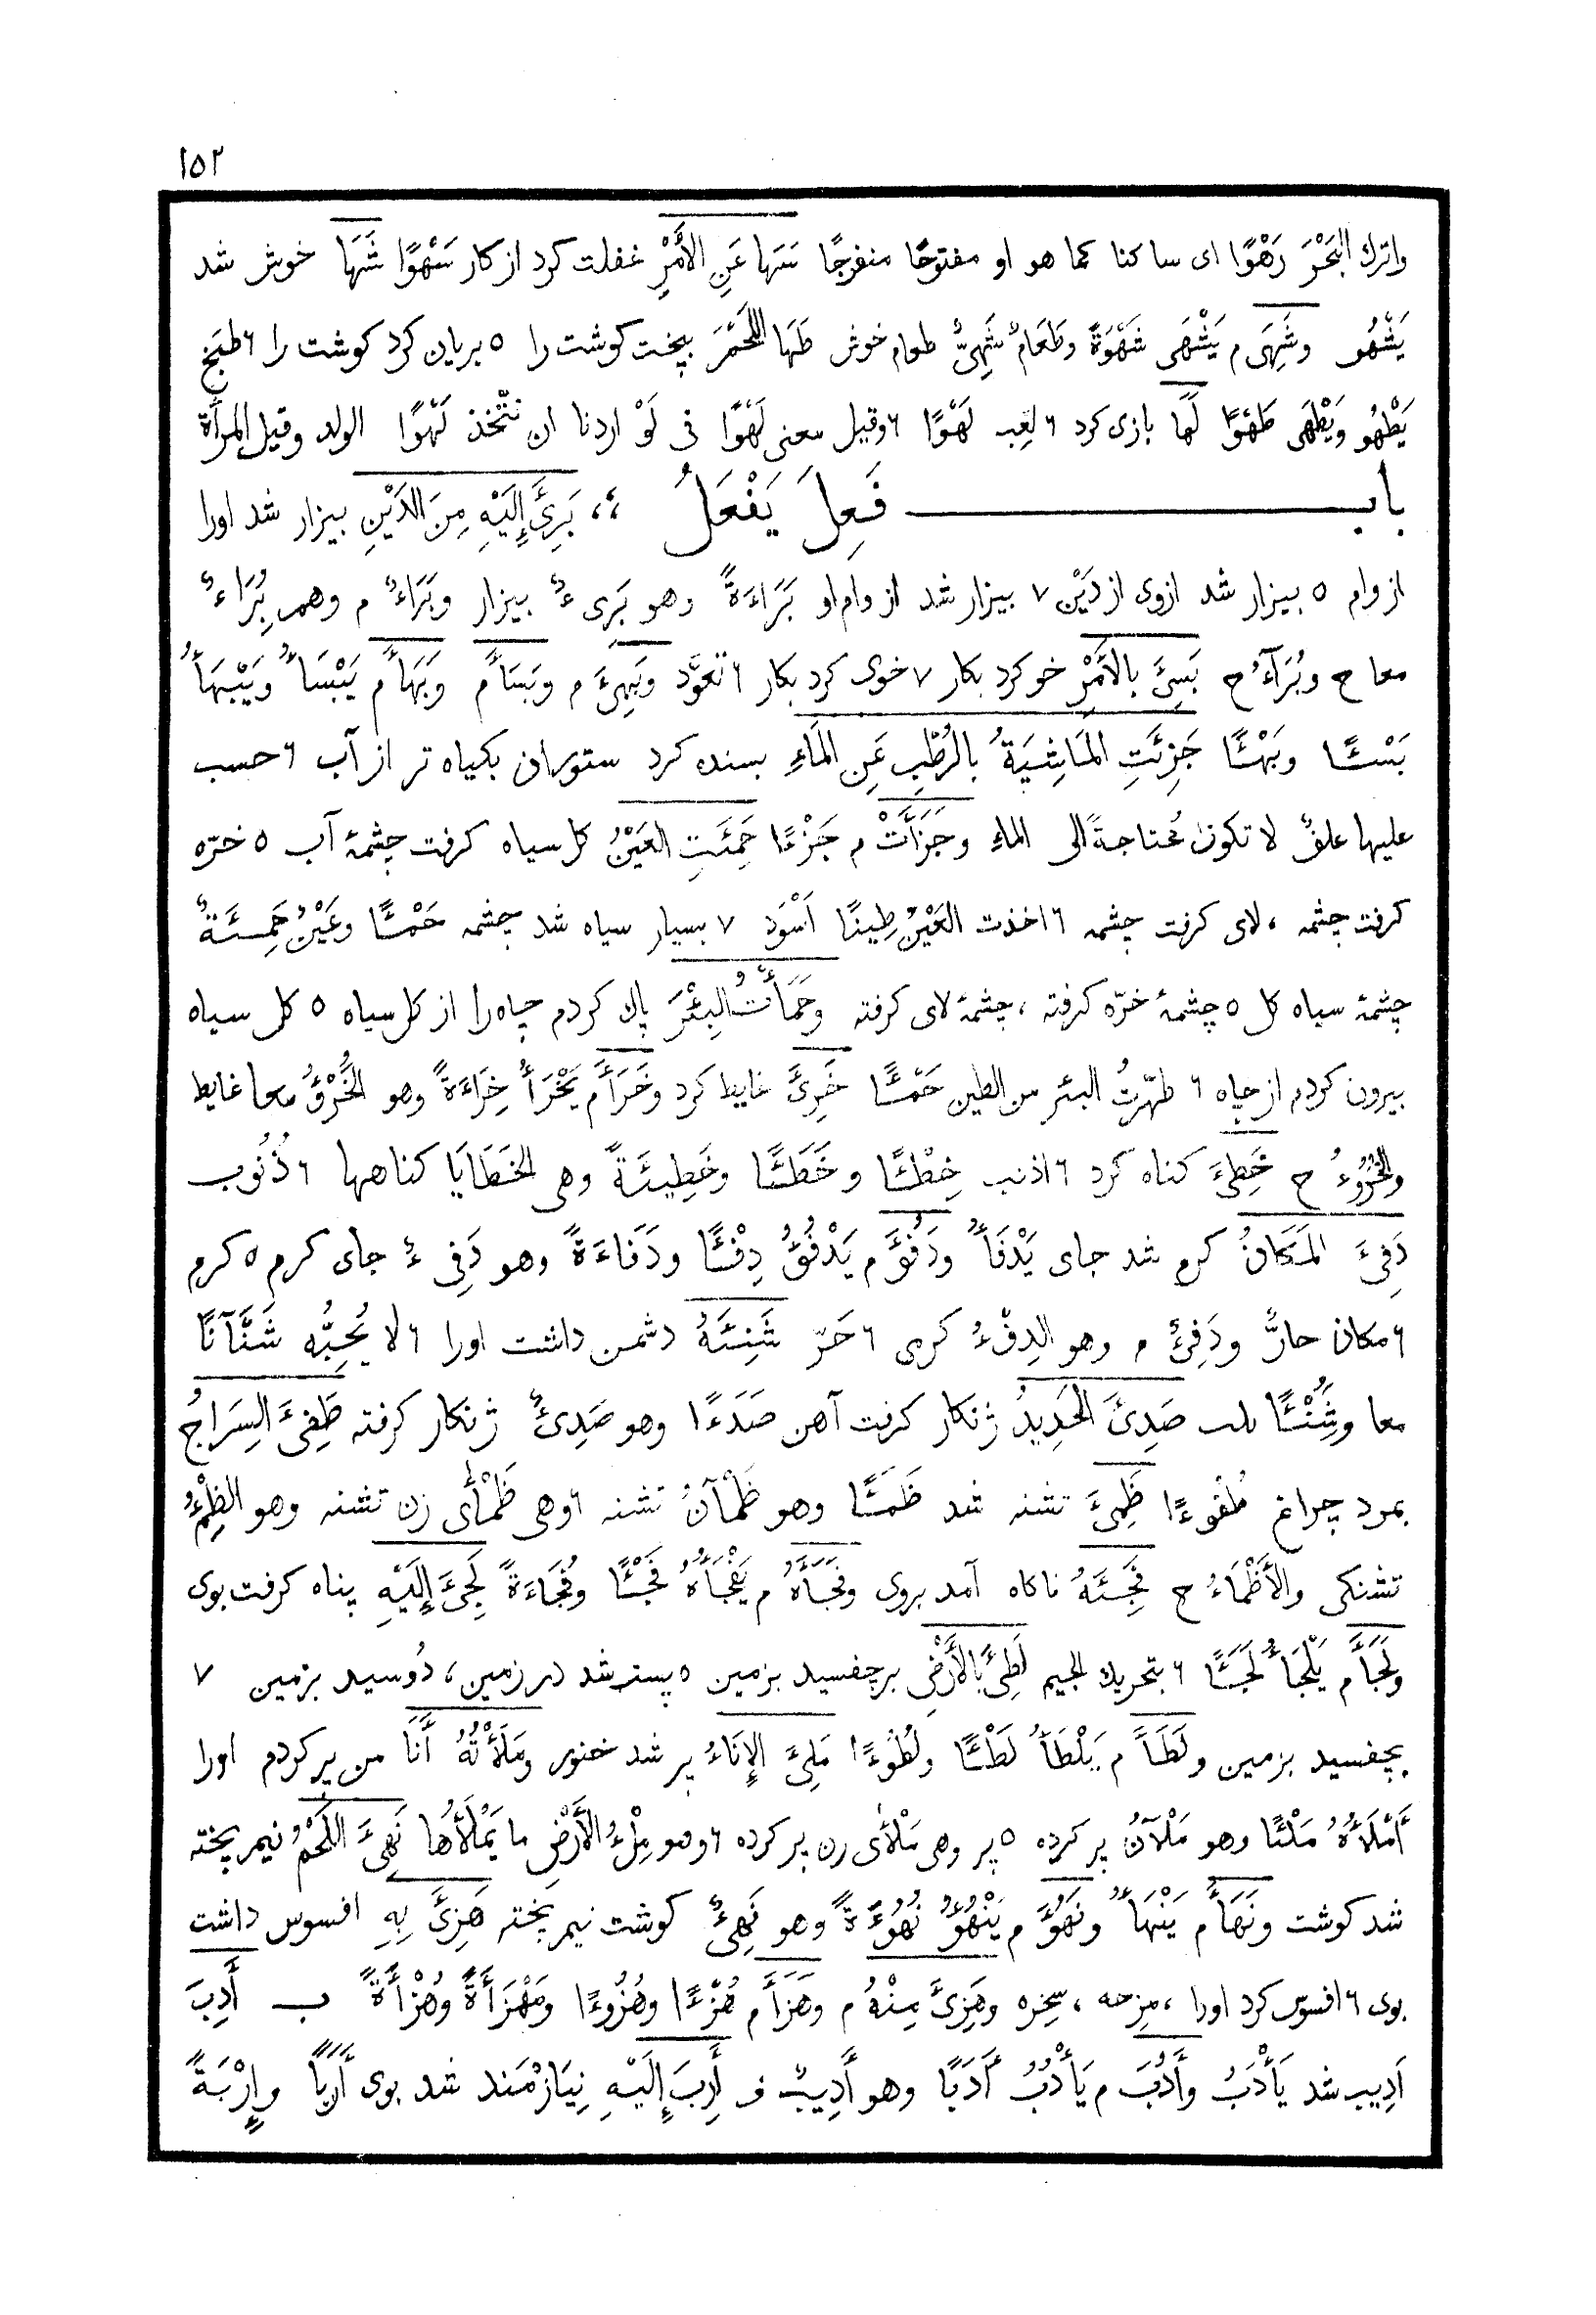 ١٥٢
واترك البَحْرَ رَهْوًا اى ساكنا كما هو او مفتوحًا منفرجًا سَهَا عَنِ الأَمْرِ غفلت كرد از كار سَهْوًا شَهَا خوش شد
يَشْهُو وشَهِىَ م يَشْهَى شَهْوَةً وطَعَامٌ شَهِىٌّ طعام خوش طَهَا اللَّحْمَ بپخت كوشت را ٥ بريان كرد كوشت را ٦ طبَخ
يَطْهُو ويَطْهَى طَهْوًا لَهَا بازى كرد ٦ لعِب لَهْوًا ٦ وقيل معنى لَهْوًا فى لَوْ اردنا ان نتّخذ لَهْوًا الولد وقيل المرأة
باب فَعِلَ يَفْعَلُ ،؛ بَرِئَ إِلَيْهِ مِنَ الدَيْنِ بيزار شد اورا
از وام ٥ بيزار شد ازوى از دَيْن ٧ بيزار شد از وام او بَرَاءَةً وهو بَرِىءٌ بيزار وبَرَاءٌ م وهم بِرَاءٌ
معا ح وبُرَآءُ ح بَسِئَ بالأَمْرِ خو كرد بكار ٧ خوى كرد بكار ٦ تعوَّد وبَهِئَ م وبَسَأَ م وبَهَأَ م يَبْسَأُ ويَبْهَأُ
بَسْئًا وبَهْئًا جَزِئَتِ المَاشِيَةُ بالرُطْبِ عَنِ المَاءِ بسنده كرد ستوران بكياه تر از آب ٦ حسب
عليها علفٌ لا تكون محتاجةً الى الماء وجَزَأَتْ م جَزْءًا حَمِئَتِ العَيْنُ كل سياه كرفت چشمهٔ آب ٥ خرّه
كرفت چشمه ، لاى كرفت چشمه ٦ اخذت العَيْنُ طِينًا اَسْوَد ٧ بسيار سياه شد چشمه حَمْئًا وعَيْنٌ حَمِئَةٌ
چشمهٔ سياه كل ٥ چشمهٔ خرّه كرفته ، چشمهٔ لاى كرفته وحَمَأْتُ البِئْرَ پاك كردم چاه را از كل سياه ٥ كل سياه
بيرون كردم از چاه ٦ طهّرتُ البئر من الطين حَمْئًا خَرِئَ غايط كرد وخَرَأَ م يَخْرَأُ خِرَاءَةً وهو الخُرْؤُ معا غايط
والخُرُوءُ ح خَطِئَ كناه كرد ٦ اذنب خِطْئًا وخَطَئًا وخَطِيئَةً وهى الخَطَايَا كناهها ٦ ذُنُوب
دَفِئَ المَكَانُ كرم شد جاى يَدْفَأُ ودَفُؤَ م يَدْفُؤُ دِفْئًا ودَفَاءَةً وهو دَفِىءٌ جاى كرم ٥ كرم
٦ مكان حارٌّ ودَفِئٌ م وهو الدِفْءُ كرمى ٦ حَرّ شَنِئَهُ دشمن داشت اورا ٦ لا يُحِبُّه شَنَآنًا
معا وشَُنْئًا صَدِئَ الحَدِيدُ ژنكار كرفت آهن صَدَءًا وهو صَدِئٌ ژنكار كرفته طَفِئَ السِرَاجُ
بمرد چراغ طُفُوءًا ظَمِئَ تشنه شد ظَمَئًا وهو ظَمْآنُ تشنه ٦ وهى ظَمْأَى زن تشنه وهو الظِمْءُ
تشنكى والأَظْمَاءُ ح فَجِئَهُ ناكاه آمد بروى وفَجَأَهُ م يَفْجَأُهُ فَجْئًا وفُجَاءَةً لَجِئَ إِلَيْهِ پناه كرفت بوى
ولَجَأَ م يَلْجَأُ لَجَئًا ٦ بتحريك الجيم لَطِئَ بالأَرْضِ برچفسيد بزمين ٥ پست شد در زمين ، دُوسيد بزمين ٧
بچفسيد بزمين ولَطَأَ م يَلْطَأُ لَطْئًا ولُطُوءًا مَلِئَ الإِنَاءُ پر شد خنور ومَلَأْتُهُ أَنَا من پر كردم اورا
أَمْلَأُهُ مَلْئًا وهو مَلْآنُ پر كرده ٥ پر وهى مَلْأَى زن پر كرده ٦ وهو مِلْءُ الأَرْضِ ما يَمْلَأُها نَهِئَ اللَحْمُ نيم پخته
شد كوشت ونَهَأَ م يَنْهَأُ ونَهُؤَ م يَنْهُؤُ نُهُوءَةً وهو نَهِئٌ كوشت نيم پخته هَزِئَ بِهِ افسوس داشت
بوى ٦ افسوس كرد اورا ، مِزحه ، سخره وهَزِئَ مِنْهُ م وهَزَأَ م هُزْءًا وهُزُوءًا ومَهْزَأَةً وهُزْأَةً ب أَدِبَ
اَدِيب شد يَأْدَبُ وأَدُبَ م يَأْدُبُ أَدَبًا وهو أَدِيبٌ ف أَرِبَ إِلَيْهِ نِيَازْمَند شد بوى أَرَبًا وإِرْبَةً